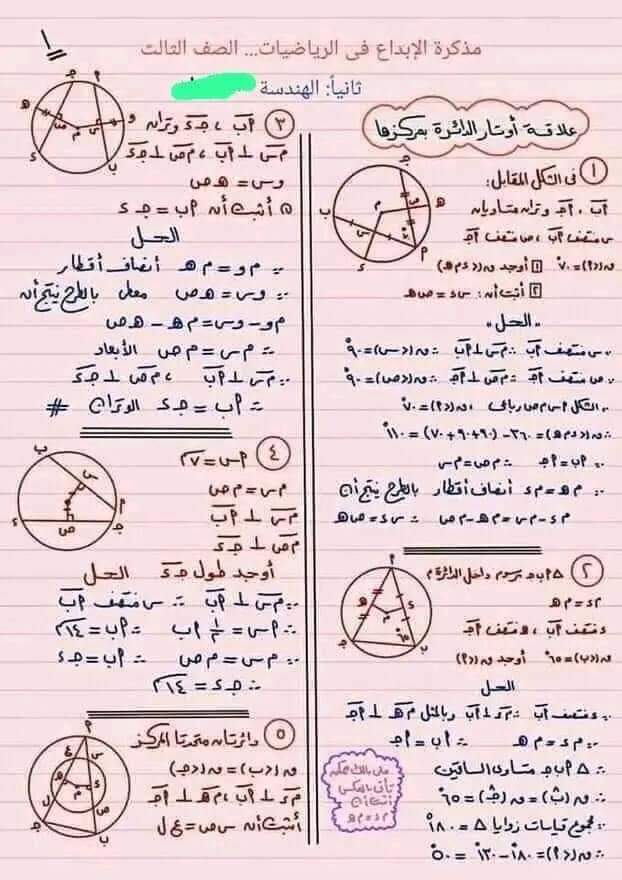 ١
مذكرة الإبداع فى الرياضيات... الصف الثالث
ثانياً: الهندسة
علاقة أوتار الدائرة بمركزها
١ فى الشكل المقابل:
أب ، أجـ وتران متساويان
س منتصف أب ، ص منتصف أجـ
ق(>أ) = ٧٠° ١ أوجد ق(>د م هـ)
٢ أثبت أن: س د = ص هـ
"الحل"
∵ س منتصف أب ∴ م س ⊥ أب ∴ ق(>س) = ٩٠°
∵ ص منتصف أجـ ∴ م ص ⊥ أجـ ∴ ق(>ص) = ٩٠°
∵ الشكل أ س م ص رباعى ، ق(>أ) = ٧٠°
∴ ق(>د م هـ) = ٣٦٠ - (٩٠ + ٩٠ + ٧٠) = ١١٠°
∵ أب = أجـ ∴ م ص = م س
∵ م هـ = م د أنصاف أقطار بالطرح ينتج أن
م د - م س = م هـ - م ص ∴ س د = ص هـ
٢ △ أ ب جـ مرسوم داخل الدائرة م
م د = م هـ
د منتصف أب ، هـ منتصف أجـ
ق(>ب) = ٦٥° أوجد ق(>أ)
الحل
∵ د منتصف أب ∴ م د ⊥ أب وبالمثل م هـ ⊥ أجـ
∵ م د = م هـ ∴ أب = أجـ
∴ △ أ ب جـ متساوى الساقين
∴ ق(ب) = ق(جـ) = ٦٥°
∵ مجموع قياسات زوايا △ = ١٨٠°
∴ ق(>أ) = ١٨٠ - ١٣٠ = ٥٠°
أثبت أن
م د = م هـ
٣ أب ، جـ د وتران
م س ⊥ أب ، م ص ⊥ جـ د
و س = هـ ص
أثبت أن أب = جـ د
الحل
∵ م و = م هـ أنصاف أقطار
∵ و س = هـ ص معطى بالطرح ينتج أن
م و - و س = م هـ - هـ ص
∴ م س = م ص الأبعاد
∵ م س ⊥ أب ، م ص ⊥ جـ د
∴ أب = جـ د الوتران #
٤ أ س = ٧ سم
م س = م ص
م س ⊥ أب
م ص ⊥ جـ د
أوجد طول جـ د الحل
∵ م س ⊥ أب ∴ س منتصف أب
∴ أ س = ١/٢ أب ∴ أب = ١٤ سم
∵ م س = م ص ∴ أب = جـ د
∴ جـ د = ١٤ سم
٥ دائرتان متحدتا المركز
ق(>ب) = ق(>جـ)
م د ⊥ أب ، م هـ ⊥ أجـ
أثبت أن س ص = ع ل